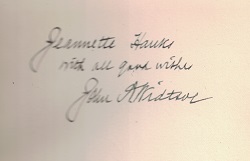 Jeannette Hawks
with all good wishes
John A Widtsoe